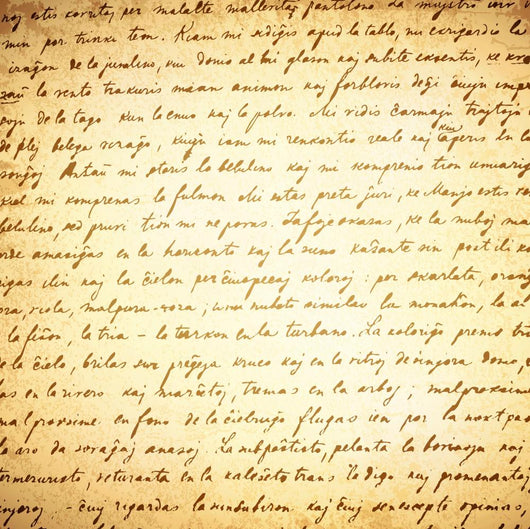 noj estis korritaj per malalte
min por trinki teon. Kiam mi sidiĝis apud la tablo, mi ekrigardis la
vizaĝon de la junulino, kiu donis al mi glason kaj subite eksentis, ke kva
zaŭ la vento trakuris mian animon kaj forblovis de ĝi ĉiujn impre
sojn de la tago kun la enuo kaj la polvo. Mi vidis ĉarmajn trajtojn
de plej belega vizaĝo, kiujn iam mi renkontis reale kaj kiu aperis en la
sonĝoj Antaŭ mi staris la belulino kaj mi komprenis tion unuavide
kiel mi komprenas la fulmon Mi estas preta ĵuri, ke estis
belulino, sed pruvi tion mi ne povas. Tafoje okazas, ke la nuboj
orde amasiĝas en la horizonto kaj la suno kaŝante sin post ili ko
rigas ilin kaj la ĉielon per ĉiuspecaj koloroj: per skarlata, oranĝ
ora, viola, malpura-roza; unu nubeto similas la monaĥon, la
la fiŝon, la tria - la turkon en la turbano. La koloriĝo
de la ĉielo, brilas sur preĝeja kruco kaj en la vitroj de sinjora domo,
las en la rivero kaj marĉetoj, tremas en la arboj; malproksime
malproksime en fono de la ĉielruĝo flugas ien por la noktpa
la aro da sovaĝaj anasoj. La subpaŝtisto, pelanta la bovinojn kaj
termezuristo, veturanta en la kaleŝeto trans la digo kaj promenantaj
sinjoroj - ĉiuj rigardas la sunsubiron kaj ĉiuj senescepte opinias,